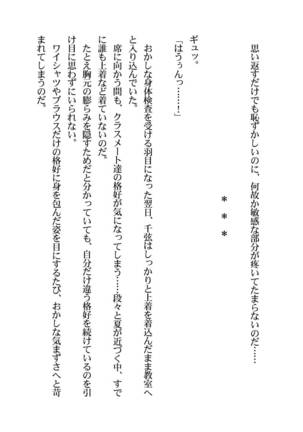 思い返すだけでも恥ずかしいのに、何故か敏感な部分が疼いてたまらないのだ……
＊＊＊
ギュッ。
「はうぅんっ……！」
おかしな身体検査を受ける羽目になった翌日、千弦はしっかりと上着を着込んだまま教室へ
と入り込んでいた。
席に向かう間も、クラスメート達の格好が気になってしまう……段々と夏が近づく中、すで
に誰も上着など着ていないのだ。
たとえ胸元の膨らみを隠すためだと分かっていても、自分だけ違う格好を続けているのを引
け目に思わずにいられない。
ワイシャツやブラウスだけの格好に身を包んだ姿を目にするたび、おかしな気まずさへと苛
まれてしまうのだ。